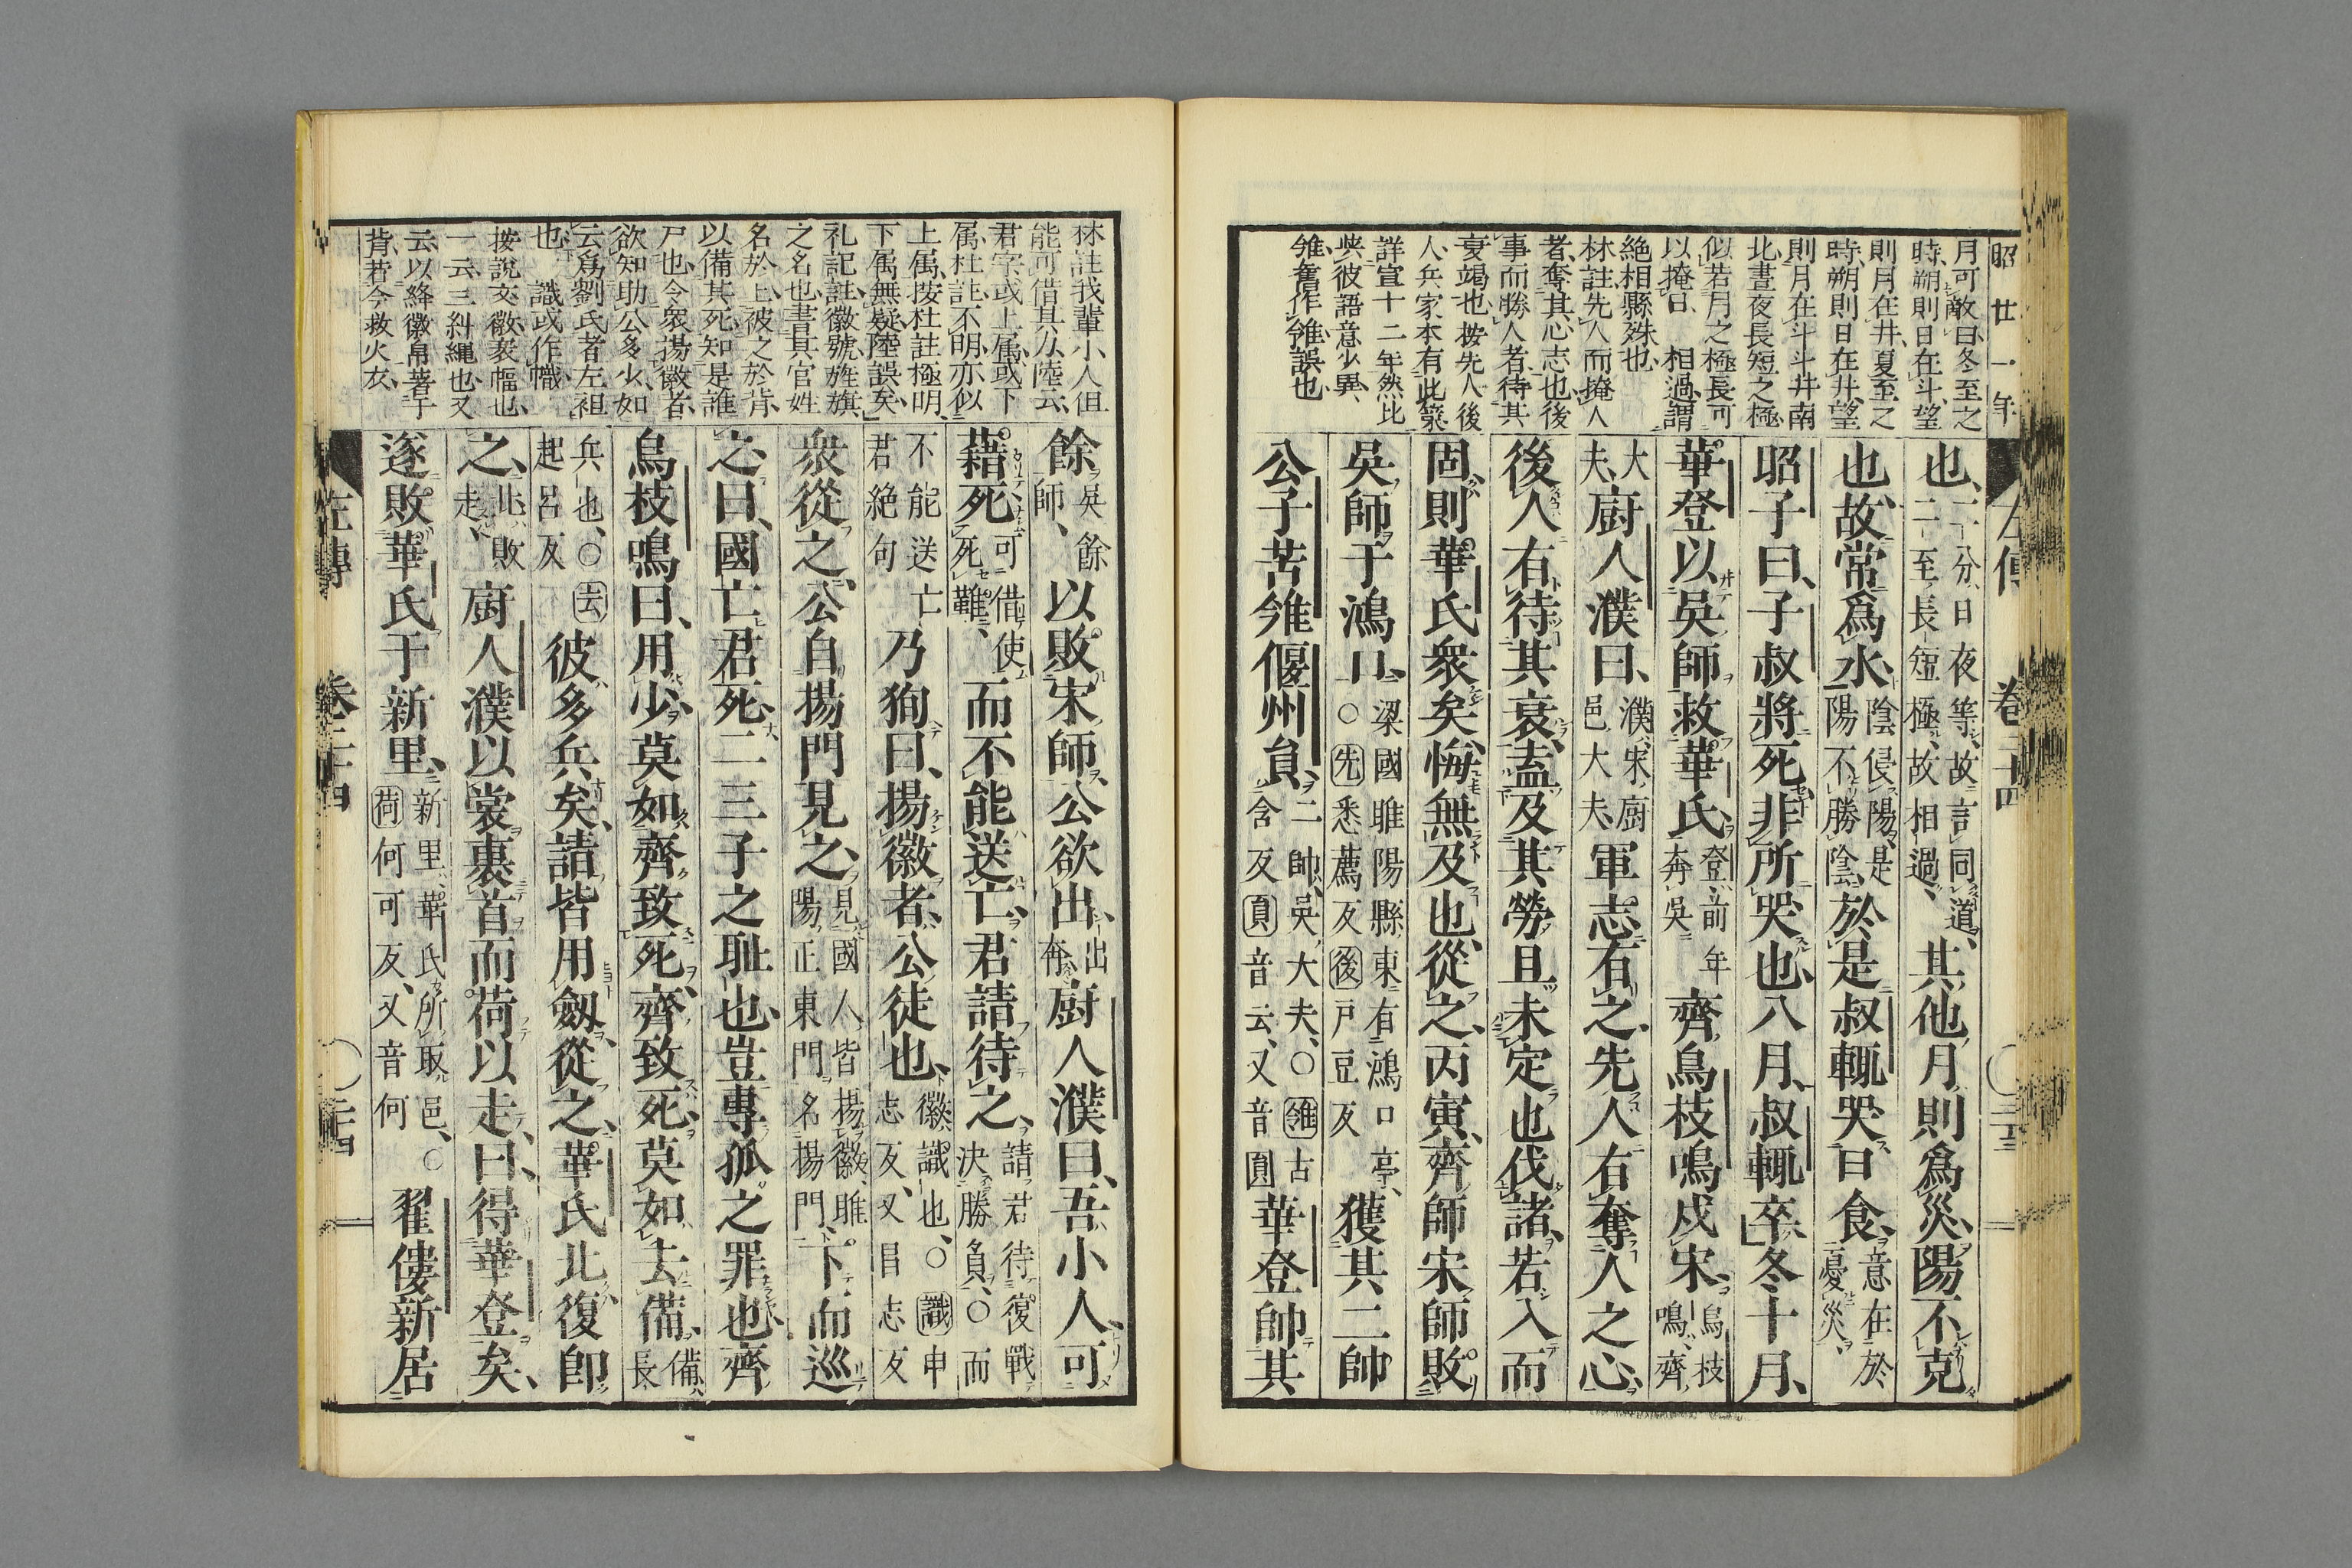 昭廿一年
左傳 卷二十四
月可敵日冬至之
時朔則日在斗望
則月在井夏至之
時朔則日在井望
則月在斗斗井南
北晝夜長短之極
似若月之極長可
以掩日 相過謂
絶相縣殊也
林註先人而掩人
者奪其心志也後
事而勝人者待其
衰竭也按先人後
人兵家本有此策
詳宣十二年然比
此彼語意少異
雂舊作雒誤也
也二分日夜等故言同道二至長短極故相過其他月則爲災陽不克
也故常爲水陰侵陽是陽不勝陰於是叔輒哭日食意在於憂災
昭子曰子叔將死非所哭也八月叔輒卒冬十月
華登以吳師救華氏登前年奔吳齊烏枝鳴戍宋烏枝鳴齊
大夫厨人濮曰濮宋厨邑大夫軍志有之先人有奪人之心
後人有待其衰盍及其勞且未定也伐諸若入而
固則華氏衆矣悔無及也從之丙寅齊師宋師敗
吳師于鴻口梁國睢陽縣東有鴻口亭○先悉薦反後戸豆反獲其二帥
公子苦雂偃州員二帥吳大夫○雂古含反員音云又音圓華登帥其
林註我輩小人但
能可借其尒陸云
君字或上属或下
属杜註不明亦似
上属按杜註極明
下属無疑陸誤矣
礼記註徽號旌旗
之名也書其官姓
名於上被之於背
以備其死知是誰
尸也令衆揚徽者
欲知助公多少如
云爲劉氏者左袒
也 識或作幟
按說文徽衺幅也
一云三糾繩也又
云以絳徽帛著于
背若今救火衣
餘吳餘師以敗宋師公欲出出奔厨人濮曰吾小人可
藉死可借使死難而不能送亡君請待之請君待復戰決勝負○而
不能送亡君絶句乃徇曰揚徽者公徒也徽識也○識申志反又昌志反
衆從之公自揚門見之見國人皆揚徽睢陽正東門名揚門下而巡
之曰國亡君死二三子之耻也豈專孤之罪也齊
烏枝鳴曰用少莫如齊致死齊致死莫如去備備長
兵也○去起呂反彼多兵矣請皆用劔從之華氏北復卽
之北敗走厨人濮以裳裹首而荷以走曰得華登矣
遂敗華氏于新里新里華氏所取邑○荷何可反又音何翟僂新居
左傳 卷二十四